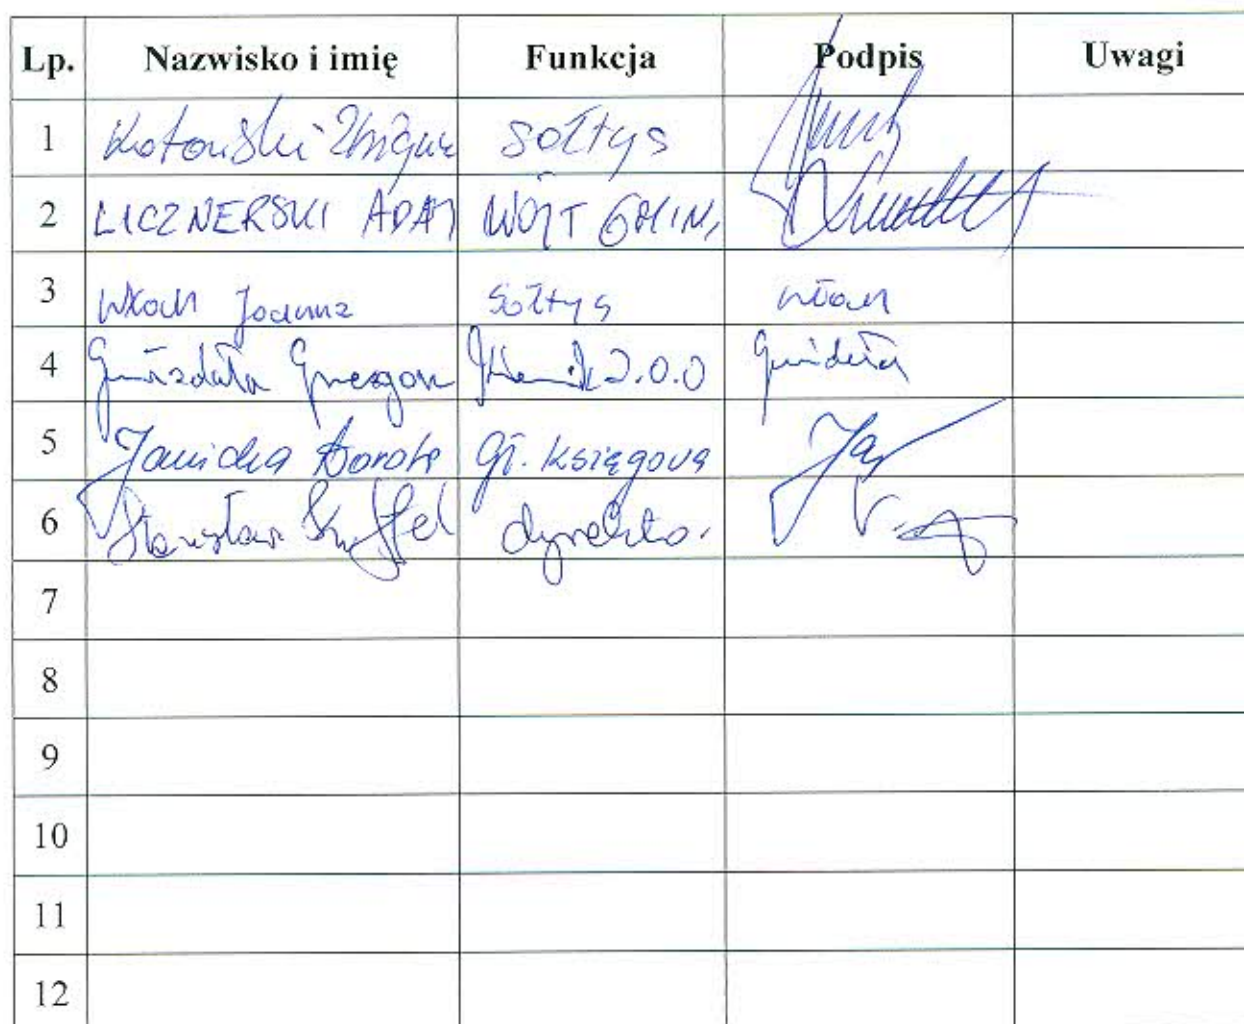 Lp. Nazwisko i imię Funkcja Podpis Uwagi
1 Kotowski Zbigniew sołtys
2 LICZNERSKI ADAM WÓJT GMINY
3 Włoch Joanna sołtys Włoch
4 Gwizdała Grzegorz Z.O.O Gwizdała
5 Janicka Dorota Gł. Księgowa Jan
6 Stanisław dyrektor
7
8
9
10
11
12